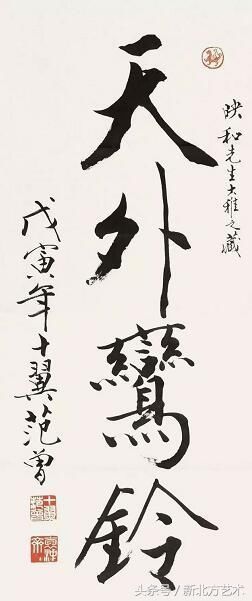 映和先生大雅之藏
天外鸞鈴
戊寅年十翼范曾
头条号／新北方艺术